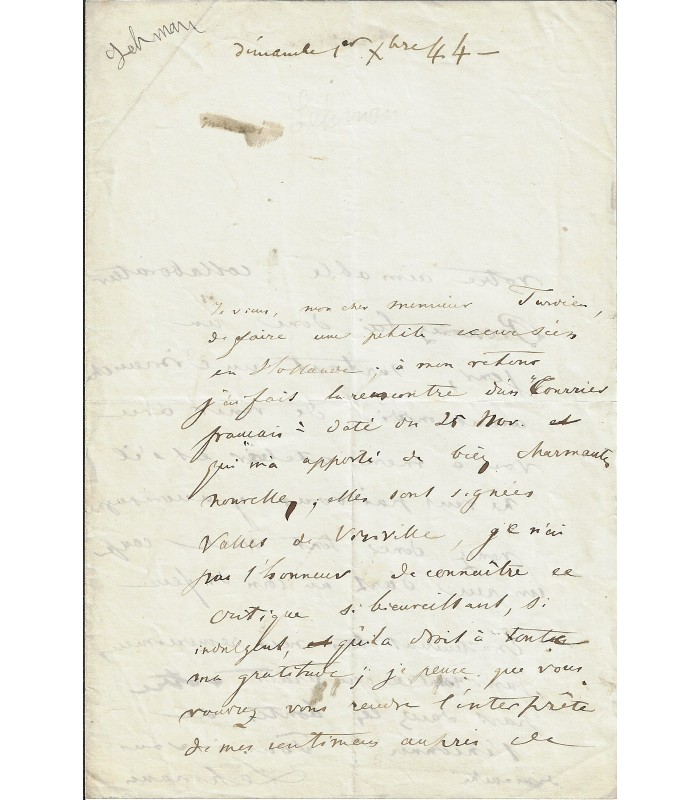 Lehman
dimanche 1er Xbre 44 —
Je viens, mon cher monsieur
de faire une petite
en Hollande; à mon retour
j'ai fait la rencontre d'un "Courrier
français" daté du 25 Nov. et
qui m'a apporté de bien charmantes
nouvelles, elles sont signées
Valles de, je n'ai
pas l'honneur de connaître ce
critique si bienveillant, si
indulgent, et qui a droit à toute
ma gratitude; je pense que vous
voudrez vous rendre l'interprète
de mes sentimens auprès de